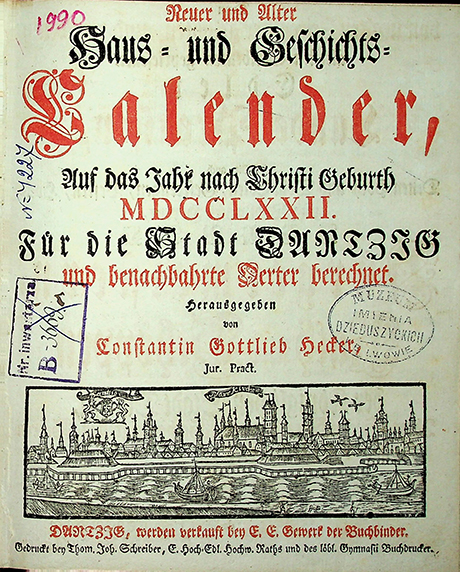 1990
Neuer und Alter
Haus- und Geschichts-
Calender,
Auf das Jahr nach Christi Geburth
MDCCLXXII.
Für die Stadt DANTZIG
und benachbahrte Oerter berechnet.
Herausgegeben
von
Constantin Gottlieb Hecker,
Jur. Pract.
N= 4227
Nr. inwentarza
B
MUZEUM
IMIENIA
DZIEDUSZYCKICH
LWOWIE
DANTZIG, werden verkauft bey E. E. Gewerk der Buchbinder.
Gedruckt bey Thom. Joh. Schreiber, E. Hoch-Edl. Hochw. Raths und des löbl. Gymnasii Buchdrucker.